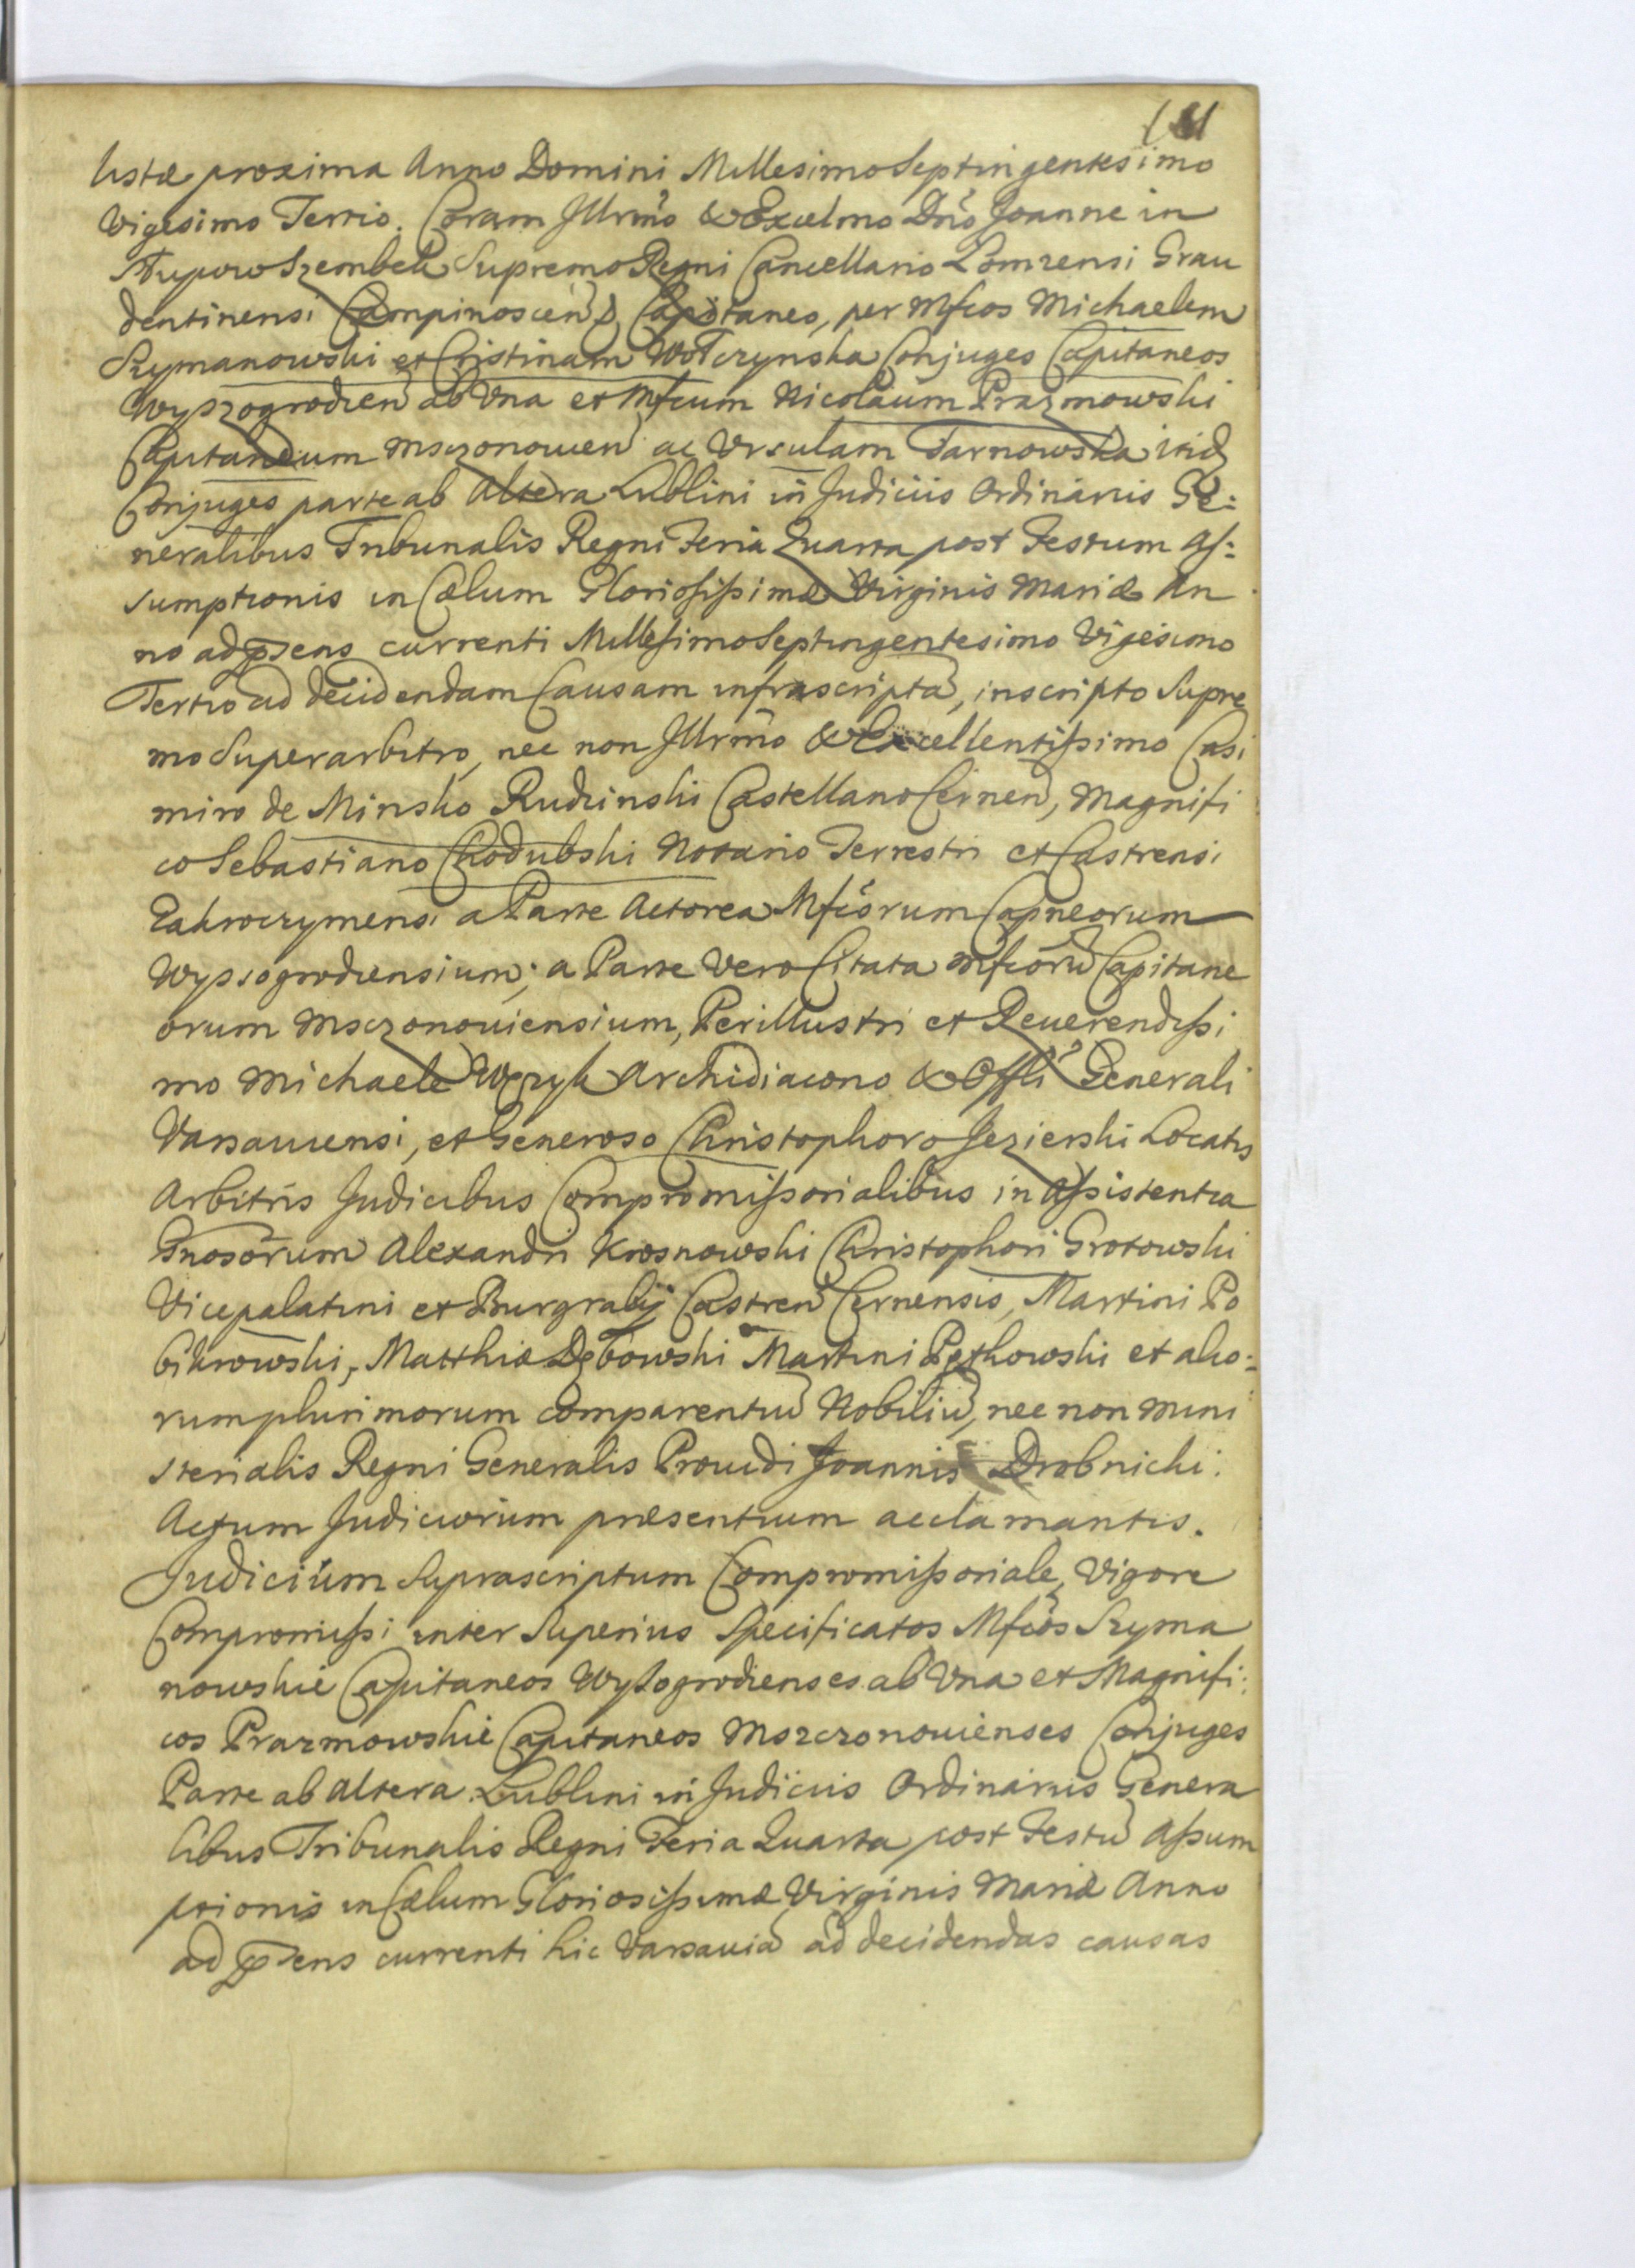 listæ proxima Anno Domini Millesimo Septingentesimo
Vigesimo Tertio. Coram Illrmo & Excelmo Dno Joanne in
Słupow Szembek Supremo Regni Cancellario Lomzensi Grau
dentinensi Campinoscen Capitaneo, per Mfcos Michaelem
Szymanowski et Cristinam Wołczynska Conjuges Capitaneos
Wyszogrodien ab Una et Mfcum Nicolaum Prazmowski
Capitaneum Mszczonowien ac Ursulam Tarnowska itid
Conjuges parte ab Altera Lublini in Judiciis Ordinariis Ge:
neralibus Tribunalis Regni Feria Quarta post Festum As:
sumptionis in Cælum Gloriosissimæ Virginis Mariæ An
no ad præsens currenti Millesimo Septingentesimo Vigesimo
Tertio ad decidendam Causam infrascripta, inscripto Supre
mo Superarbitro, nec non Illrmo & Excellentissimo Casi
miro de Minsko Rudzinski Castellano Cernen, Magnifi
co Sebastiano Chodubski Notario Terrestri et Castrensi
Zakroczymensi a Parte Actorea Mfcorum Capneorum
Wyssogrodiensium; a Parte Vero Citata Mfcorū Capitane
orum Msczonoviensium, Perillustri et Reverendissi
mo Michaele Wezyk Archidiacono & Offli Generali
Varsaviensi, et Generoso Christophoro Jezierski Locatis
Arbitris Judicibus Compromissorialibus in Assistentia
Gnosorum Alexandri Krosnowski Christophori Grotowski
Vicepalatini et Burgrabij Castren Cernensis, Martini Po
bikrowski, Matthiæ Dębowski Martini Pęzkowski et alio:
rum plurimorum comparentiū Nobiliū, nec non Mini
sterialis Regni Generalis Providi Joannis Drobnicki.
Actum Judiciorum præsentium acclamantis.
Judicium Suprascriptum Compromissoriale, Vigore
Compromissi inter Superius Specificatos Mfcos Szyma
nowskie Capitaneos Wysogrodienses ab Una et Magnifi:
cos Prazmowskie Capitaneos Mszczonovienses Conjuges
Parte ab Altera Lublini in Judiciis Ordinariis Genera
libus Tribunalis Regni Feria Quarta post Festū Assum
ptionis in Cælum Gloriosissimæ Virginis Mariæ Anno
ad præsens currenti hic Varsaviæ ad decidendas causas